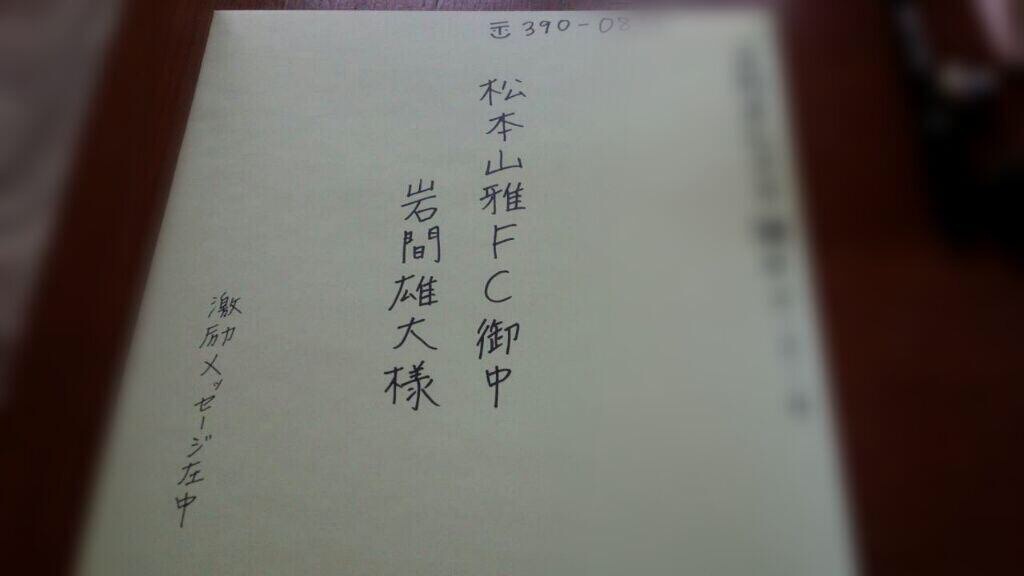 〒390-08
松本山雅FC御中
岩間雄大様
激励メッセージ在中